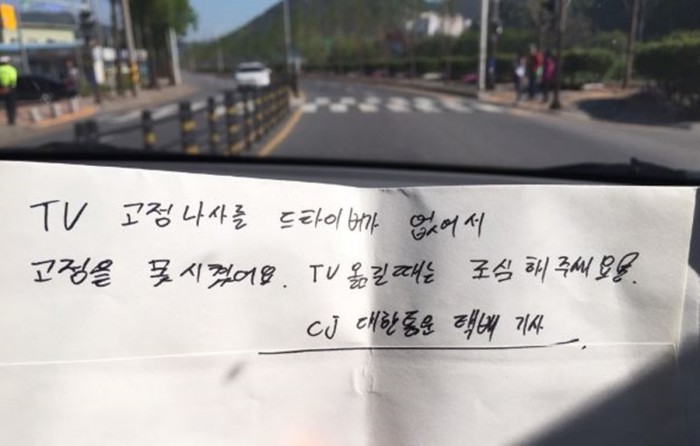 TV 고정 나사를 드라이버가 없어서
고정을 못 시켰어요. TV 옮길때는 조심 해 주세요.
CJ 대한통운 택배 기사.